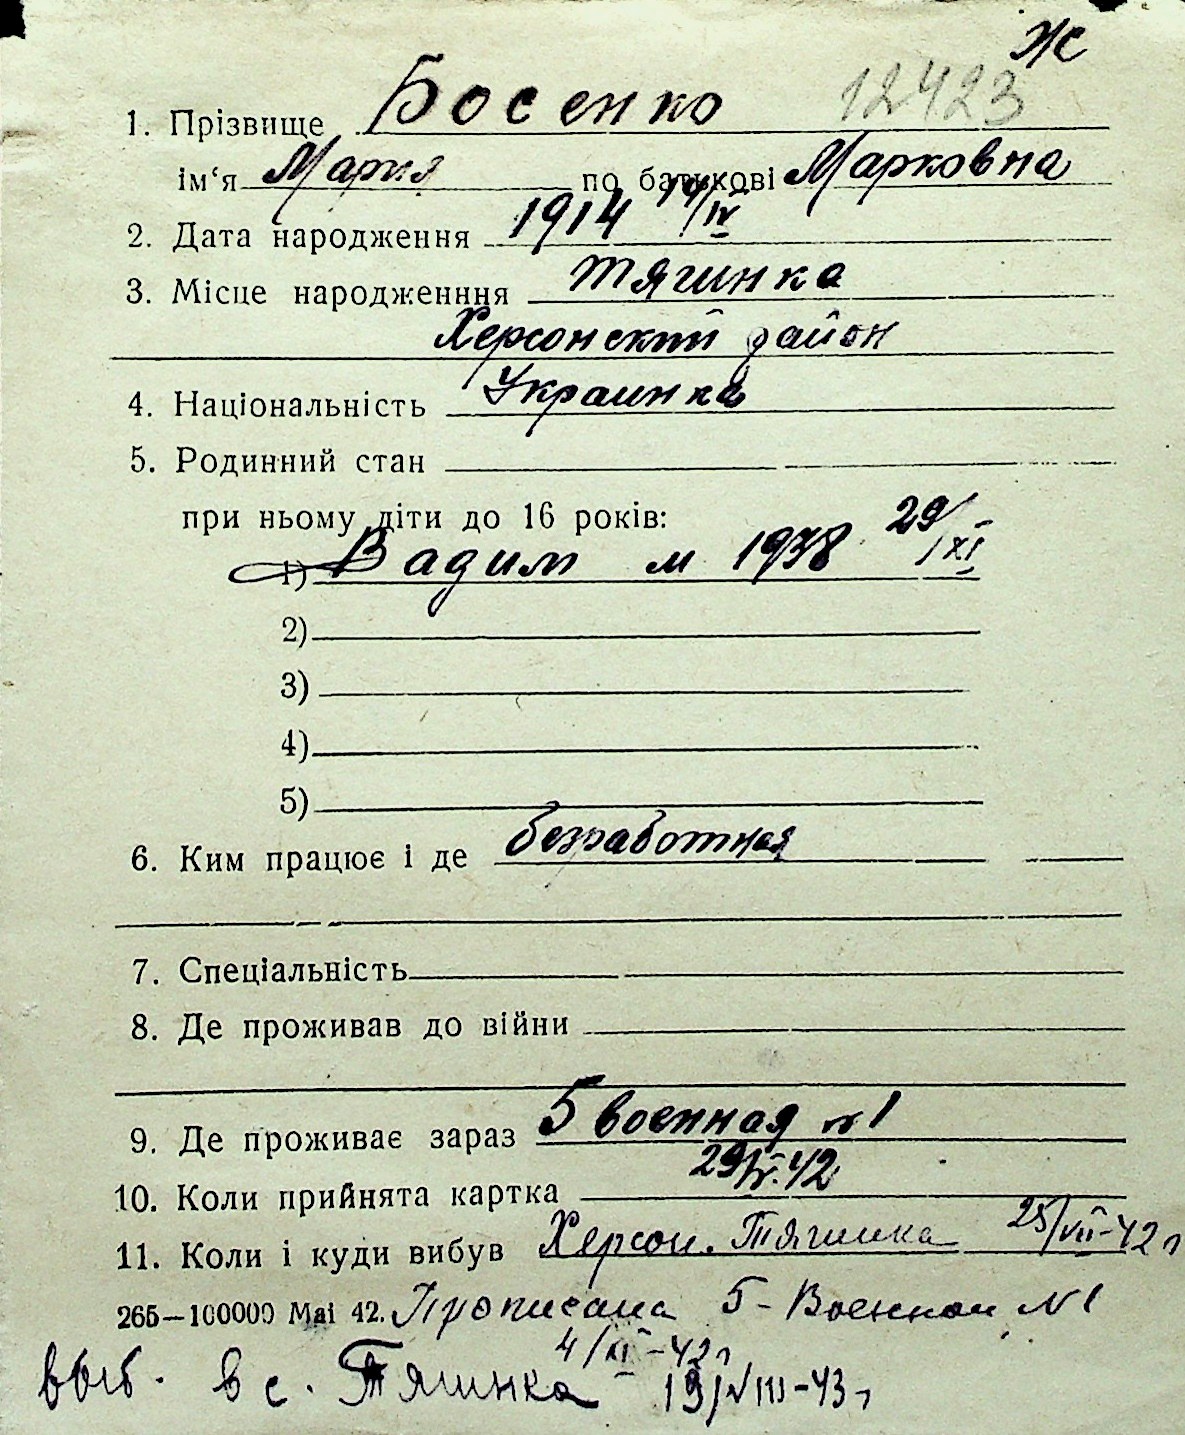 Ж
12423
1. Прізвище Босенко
ім‘я Мария по батькові Марковна
2. Дата народження 1914 14/IV
3. Місце народженння Тягинка
Херсонский район
4. Національність Украинка
5. Родинний стан
при ньому діти до 16 років:
1) Вадим м 1938 29/XI
2)
3)
4)
5)
6. Ким працює і де безработная
7. Спеціальність
8. Де проживав до війни
9. Де проживає зараз 5 военная №1
10. Коли прийнята картка 29/IV-42
11. Коли і куди вибув Херсон. Тягинка 25/VII-42 г
265—100000 Маі 42. Прописана 5 - Военная № 1
4/XI-42 г
выб. в с. Тягинка 19/VIII-43 г